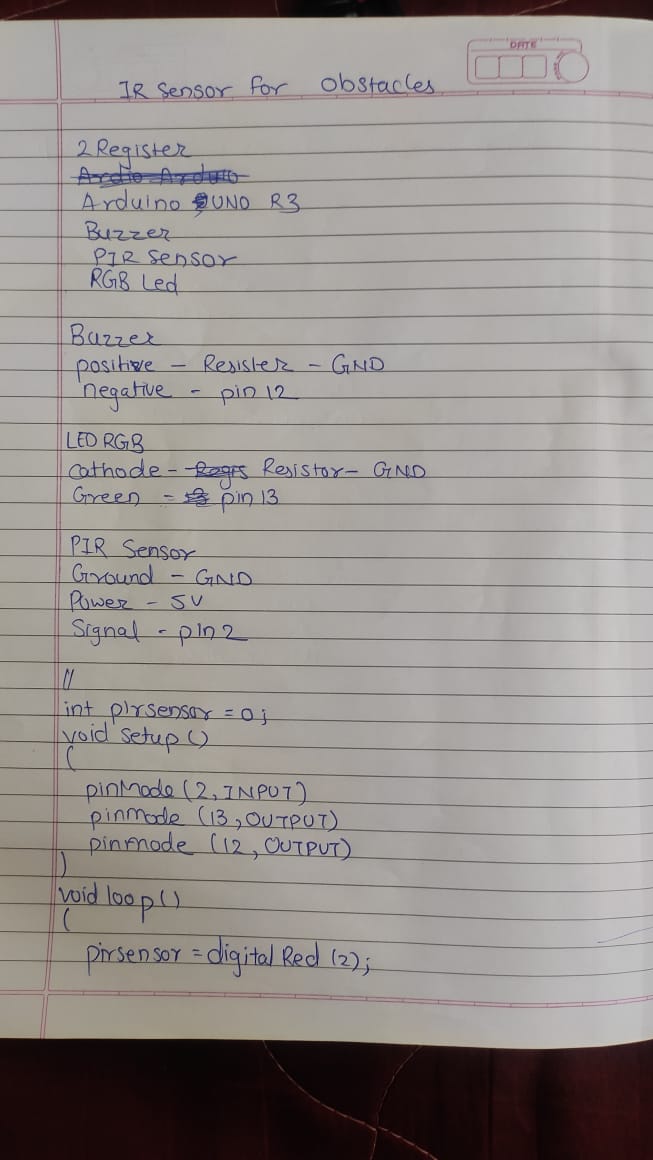 DATE
IR Sensor for Obstacles
2 Register
Arduino UNO R3
Buzzer
PIR Sensor
RGB Led
Buzzer
positive - Resister - GND
negative - pin 12
LED RGB
Cathode - Resistor - GND
Green - pin 13
PIR Sensor
Ground - GND
Power - 5V
Signal - pin 2
//
int pirsensor = 0;
void setup ()
(
pinMode (2, INPUT)
pinmode (13, OUTPUT)
pinmode (12, OUTPUT)
)
void loop ()
(
pirsensor = digital Red (2);